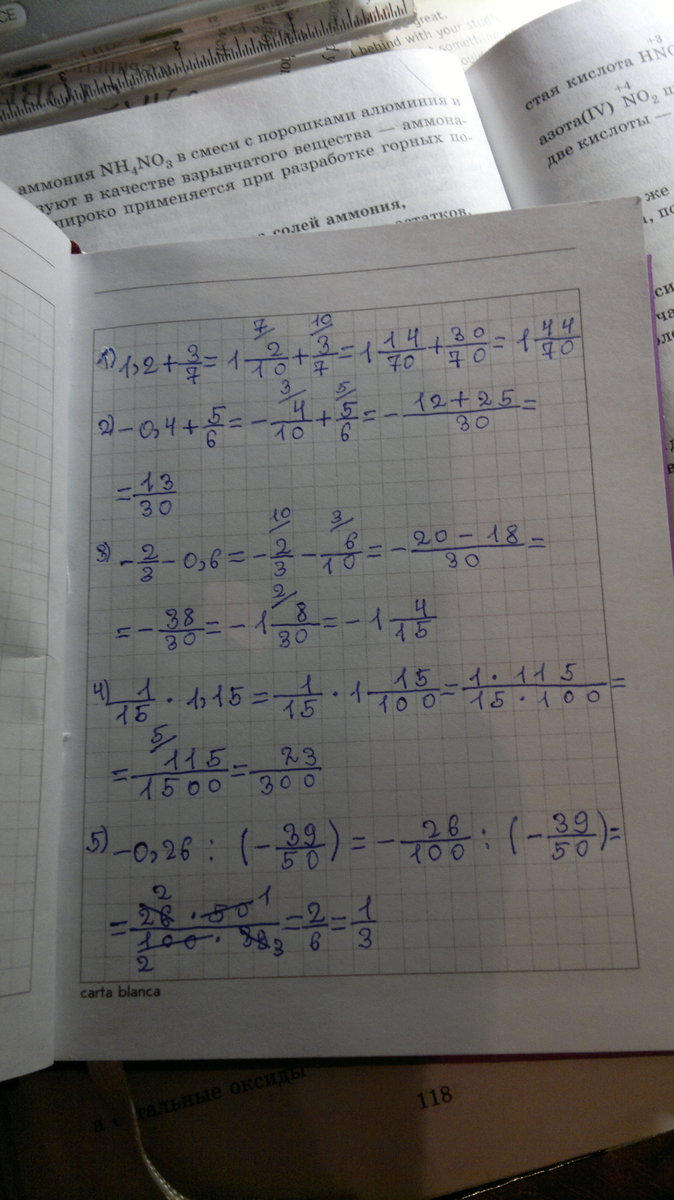 CE
great.
behind with your stud
somethin
аммония NH₄NO₃ в смеси с порошками алюминия и
зуют в качестве взрывчатого вещества — аммона-
широко применяется при разработке горных по-
солей аммония,
остатков,
+3
стая кислота HNO
+4
азота(IV) NO₂ п
две кислоты —
же
1) 1,2 + 3/7 = 1 2/10 + 3/7 = 1 14/70 + 30/70 = 1 44/70
2) -0,4 + 5/6 = - 4/10 + 5/6 = - 12+25/30 =
= 13/30
3) - 2/3 - 0,6 = - 2/3 - 6/10 = - 20-18/30 =
= - 38/30 = -1 8/30 = -1 4/15
4) 1/15 · 1,15 = 1/15 · 1 15/100 = 1·115/15·100 =
= 115/1500 = 23/300
5) -0,26 : (- 39/50) = - 26/100 : (- 39/50) =
= 26·50/100·39 = 2/6 = 1/3
carta blanca
оксиды
118